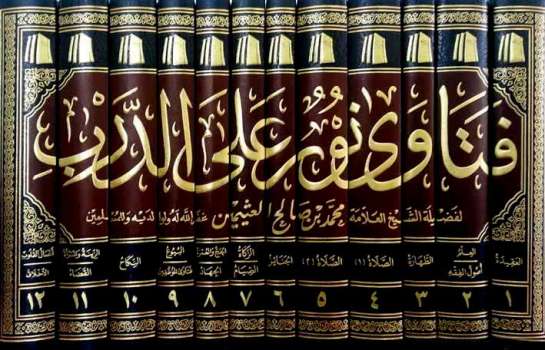 فتاوى نور على الدرب
لفضيلة الشيخ العلامة محمد بن صالح العثيمين غفر الله له ولوالديه وللمسلمين
العقيدة
١
العلم
أصول الفقه
٢
الطهارة
٣
الصلاة (١)
٤
الصلاة (٢)
٥
الجنائز
٦
الزكاة
الصيام
٧
الحج والعمرة
الجهاد
٨
البيوع
٩
النكاح
١٠
القضاء
١١
الأخلاق
١٢